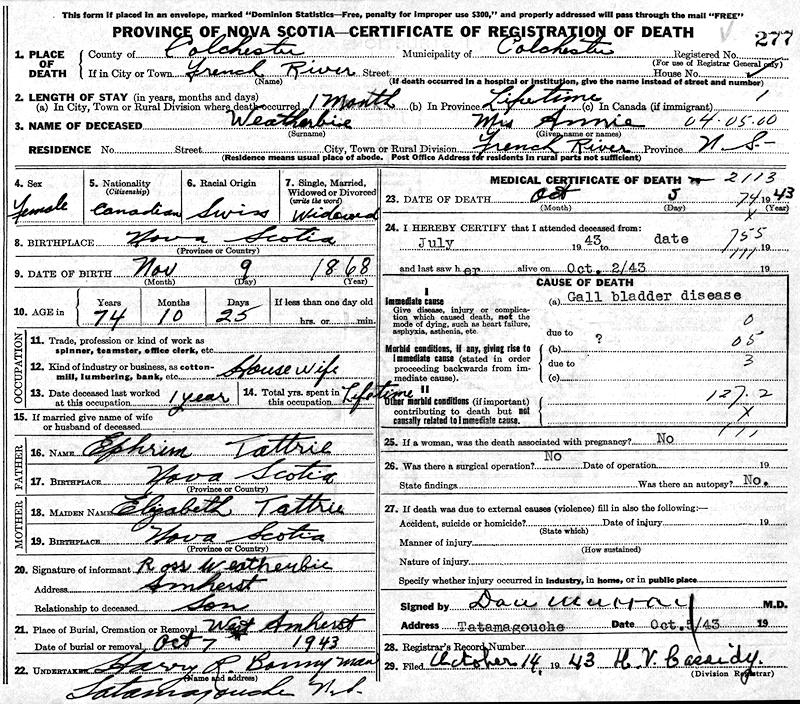 This form if placed in an envelope, marked "Dominion Statistics—Free, penalty for improper use $300," and properly addressed will pass through the mail "FREE"
PROVINCE OF NOVA SCOTIA—CERTIFICATE OF REGISTRATION OF DEATH
277
1. PLACE OF DEATH County of Colchester Municipality of Colchester Registered No.
(For use of Registrar General only)
If in City or Town French River Street House No.
(Name) (If death occurred in a hospital or institution, give the name instead of street and number)
2. LENGTH OF STAY (in years, months and days)
(a) In City, Town or Rural Division where death occurred 1 Month (b) In Province Lifetime (c) In Canada (if immigrant) 1
3. NAME OF DECEASED Weatherbie Mrs Annie 04.05.00
(Surname) (Given name or names)
RESIDENCE No. Street City, Town or Rural Division French River Province N.S.
(Residence means usual place of abode. Post Office Address for residents in rural parts not sufficient)
4. Sex Female
5. Nationality (Citizenship) Canadian
6. Racial Origin Swiss
7. Single, Married, Widowed or Divorced (write the word) Widowed
8. BIRTHPLACE Nova Scotia
(Province or Country)
9. DATE OF BIRTH Nov 9 1868
(Month) (Day) (Year)
10. AGE in Years Months Days If less than one day old
74 10 25 hrs. or min.
OCCUPATION
11. Trade, profession or kind of work as spinner, teamster, office clerk, etc.
12. Kind of industry or business, as cotton-mill, lumbering, bank, etc. Housewife
13. Date deceased last worked at this occupation 1 year 14. Total yrs. spent in this occupation Lifetime
15. If married give name of wife or husband of deceased
FATHER
16. NAME Ephrim Tattrie
17. BIRTHPLACE Nova Scotia
(Province or Country)
MOTHER
18. MAIDEN NAME Elizabeth Tattrie
19. BIRTHPLACE Nova Scotia
(Province or Country)
20. Signature of informant Ross Weatherbie
Address Amherst
Relationship to deceased Son
21. Place of Burial, Cremation or Removal West Amherst
Date of burial or removal Oct 7 1943
22. UNDERTAKER Harry R Bonnyman
(Name and address)
Tatamagouche N.S.
MEDICAL CERTIFICATE OF DEATH 2113
23. DATE OF DEATH Oct 5 1943
(Month) (Day) (Year)
74
x
24. I HEREBY CERTIFY that I attended deceased from:
July 1943 to date 19
755
111
and last saw her alive on Oct. 2/43 19
CAUSE OF DEATH
I
Immediate cause (a) Gall bladder disease
Give disease, injury or complication which caused death, not the mode of dying, such as heart failure, asphyxia, asthenia, etc.
due to ?
0
Morbid conditions, if any, giving rise to immediate cause (stated in order proceeding backwards from immediate cause). (b) 05
due to 3
(c)
II
Other morbid conditions (if important) contributing to death but not causally related to immediate cause.
127.2
x
111
25. If a woman, was the death associated with pregnancy? No
26. Was there a surgical operation? No Date of operation 19
State findings Was there an autopsy? No.
27. If death was due to external causes (violence) fill in also the following:—
Accident, suicide or homicide? Date of injury 19
(State which)
Manner of injury
(How sustained)
Nature of injury
Specify whether injury occurred in industry, in home, or in public place
Signed by Dan Murray M.D.
Address Tatamagouche Date Oct. 5/43 19
28. Registrar's Record Number
29. Filed October 14, 1943 H. V. Cassidy.
(Division Registrar)